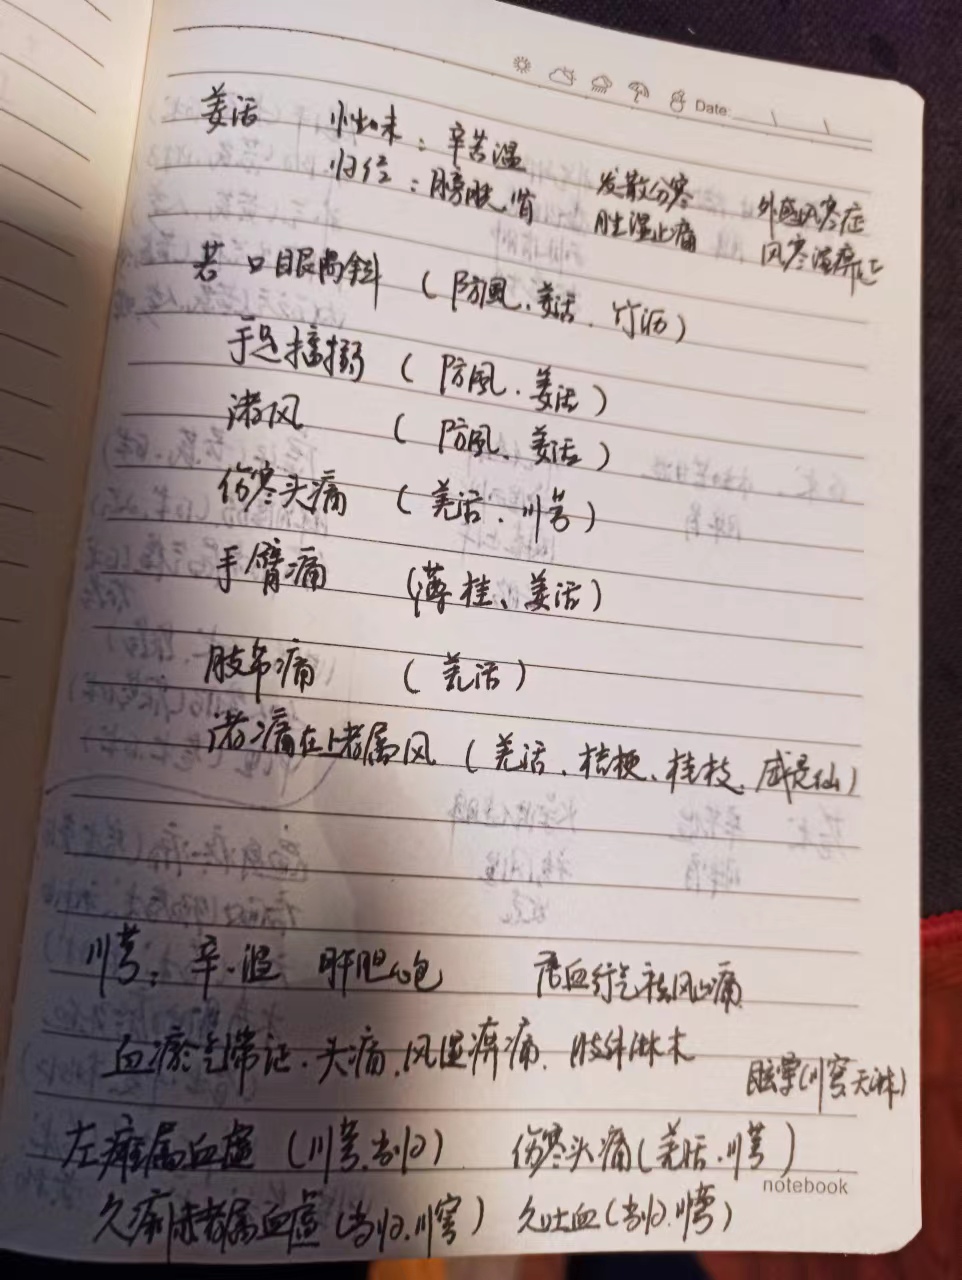 Date:
羌活 性味：辛苦温
归经：膀胱肾 发散分寒 外感风寒症
胜湿止痛 风寒湿痹证
若口眼喎斜（防風、羌活、竹沥）
手足搐搦（防風、羌活）
诸风（防風、羌活）
伤寒头痛（羌活、川芎）
手臂痛（薄桂、羌活）
肢节痛（羌活）
诸痛在上者属风（羌活、桔梗、桂枝、威灵仙）
川芎：辛、温 肝胆心包 活血行气祛风止痛
血瘀气滞证、头痛、风湿痹痛、肢体麻木
眩晕（川芎天麻）
左瘫属血虚（川芎、当归） 伤寒头痛（羌活、川芎）
久痢属血虚（当归、川芎） 久吐血（当归、川芎）
notebook